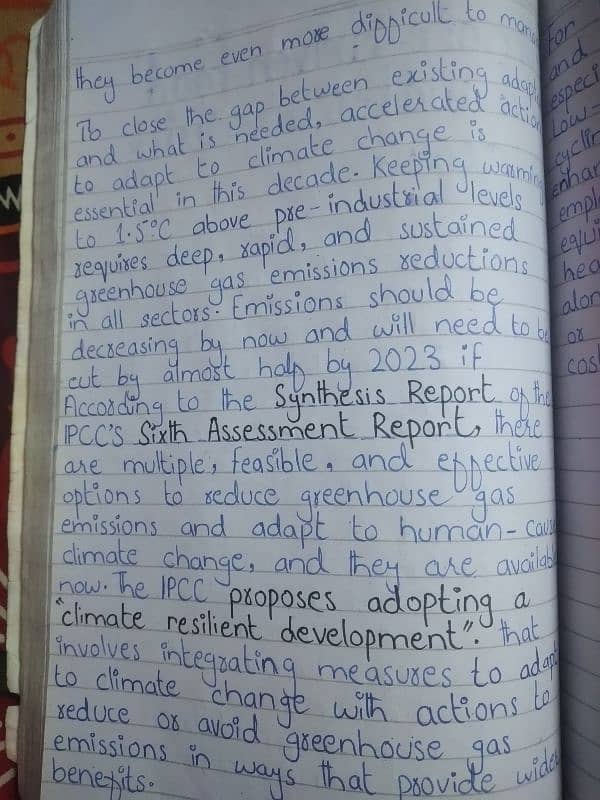 they become even more difficult to mana
To close the gap between existing adap
and what is needed, accelerated action
to adapt to climate change is
essential in this decade. Keeping warming
to 1.5°C above pre-industrial levels
requires deep, rapid, and sustained
greenhouse gas emissions reductions
in all sectors. Emissions should be
decreasing by now and will need to be
cut by almost half by 2023 if
According to the Synthesis Report of the
IPCC'S Sixth Assessment Report, there
are multiple, feasible, and effective
options to reduce greenhouse gas
emissions and adapt to human-caus
climate change, and they are availabl
now. The IPCC proposes adopting a
"climate resilient development". that
involves integrating measures to adapt
to climate change with actions to
reduce or avoid greenhouse gas
emissions in ways that provide wider
benefits.
For
and
especi
Low-
cyclin
enhan
emplo
equi
hea
alon
or
cos